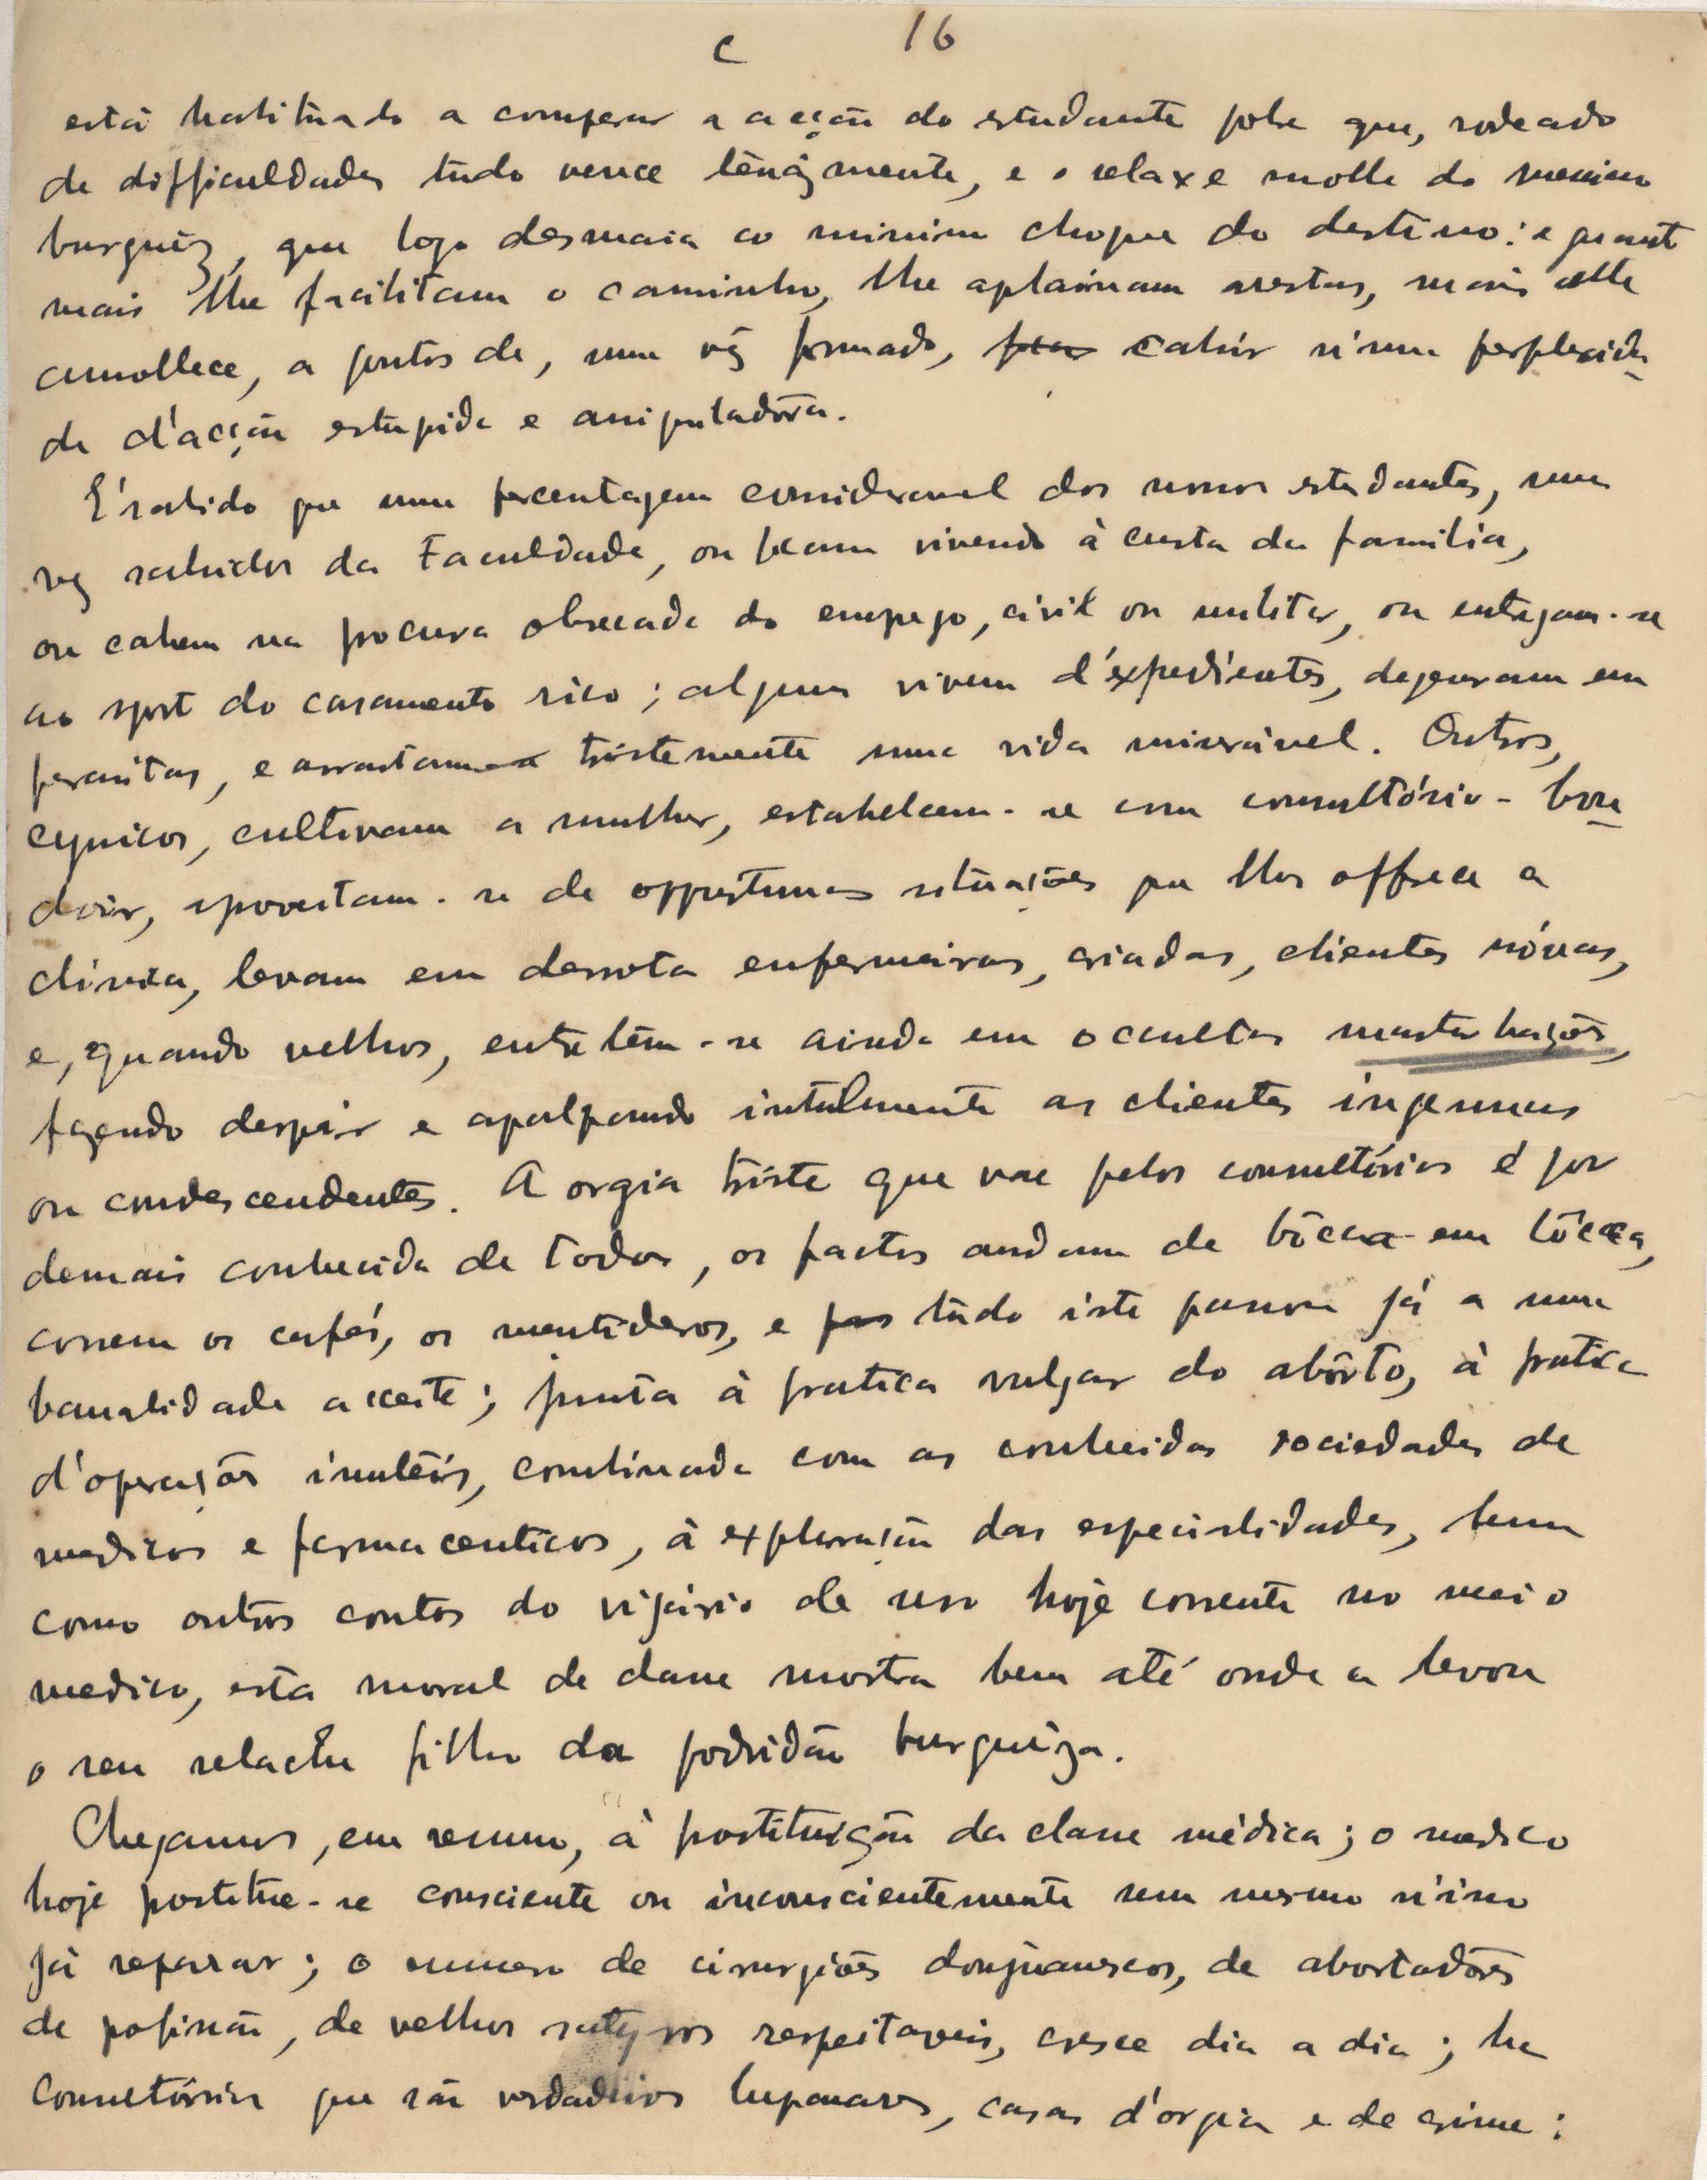 C 16
está habituado a comparar a acção do estudante pobre que, rodeado
de difficuldades tudo vence tenázmente, e o relaxe molle do menino
burguêz, que logo desmaia ao minimo choque do destino: e quant
mais lhe facilitam o caminho, lhe aplainam arestas, mais elle
amollece, a pontos de, uma vêz formado, cahir n'uma perplexida-
de d'acção estupida e aniquiladôra.
É sabido que uma percentagem consideravel dos nossos estudantes, uma
vez sahidos da Faculdade, ou ficam vivendo à custa da familia,
ou cahem na procura obsecada do emprego, civil ou militar, ou entregam-se
ao sport do casamento rico; alguns vivem d'expedientes, degeneram em
parasitas, e arrastam tristemente uma vida miserável. Outros,
cynicos, cultivam a mulher, estabelecem-se com consultório-bou-
doir, aproveitam-se de opportunas situações que lhes offrece a
clínica, levam em derrota enfermeiras, criadas, clientes nóvas,
e, quando velhos, entretêm-se ainda em occultas masturbações,
fazendo despir e apalpando inutilmente as clientes ingenuas
ou condescendentes. A orgia triste que vae pelos consultórios é por
demais conhecida de todos, os factos andam de bôcca em bôcca,
correm os cafés, os mentideros, e tudo isto passou já a uma
banalidade acceite; junta à pratica vulgar do abôrto, à pratica
d'operações inuteis, combinada com as conhecidas sociedades de
medicos e farmaceuticos, à exploração das especialidades, bem
como outros contos do vigário de uso hoje corrente no meio
medico, esta moral de classe mostra bem até onde a levou
o seu relache filho da podridão burguêza.
Chegamos, em resumo, à prostituição da classe médica; o medico
hoje prostitue-se consciente ou inconscientemente sem mesmo n'isso
já reparar; o numero de cirurgiões donjuanescos, de abortadôres
de profissão, de velhos satyros respeitaveis, cresce dia a dia; ha
consultórios que são verdadeiros lupanares, casas d'orgia e de crime: